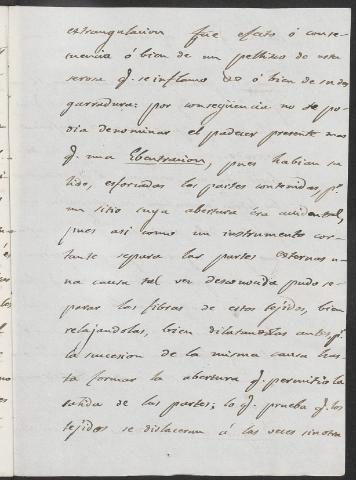 estrangulacion fue efeto ó conse-
cuencia ó bien de un pellizco de esta
serosa q. se inflamo ó bien de su des
garradura: por conseqüencia no se po-
dia denominar el padecer presente mas
q. una Eventracion, pues habian sa
lido, esforzadas las partes contenidas, pr.
un sitio cuya abertura éra accidental,
pues asi como un instrumento cor-
tante separa las partes externas u-
na causa tal vez desconocida pudo se-
parar las fibras de estos tejidos, bien
relajandolas, bien dilatandolas antes pr.
la sucesion de la misma causa has-
ta formar la abertura q. permitió la
salida de las partes; lo q. prueba q. los
tejidos se dislaceran á las veces sin otra